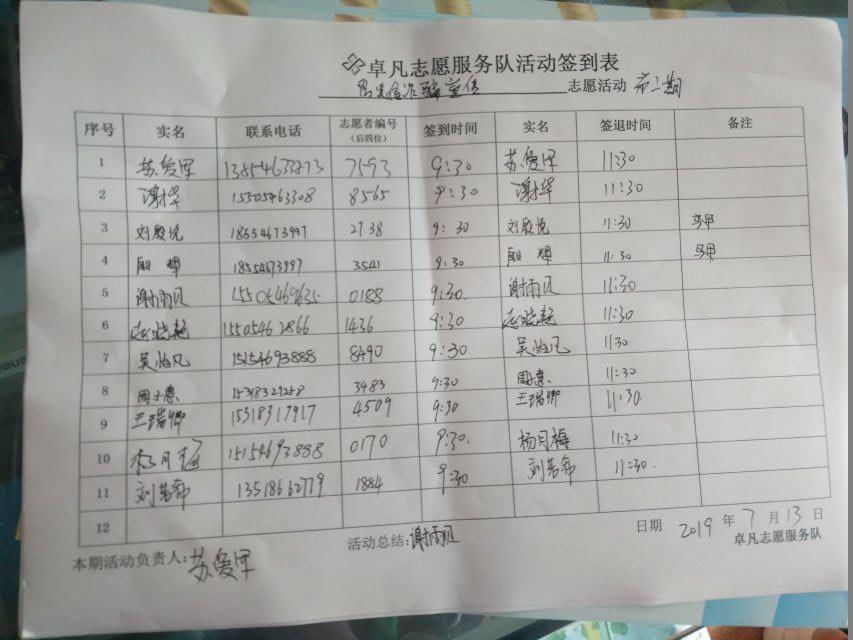 卓凡志愿服务队活动签到表
防电信诈骗宣传 志愿活动 第二期
序号 实名 联系电话 志愿者编号 签到时间 实名 签退时间 备注
(后四位)
1 苏俊军 7593 9:30 苏俊军 11:30
2 谢华 15505463308 8565 9:30 谢华 11:30
3 刘殷悦 18654673997 2738 9:30 刘殷悦 11:30 马甲
4 殷娜 18554673997 3541 9:30 殷娜 11:30 马甲
5 谢雨凡 15505469635 0188 9:30 谢雨凡 11:30
6 1550546 2866 1436 9:30 11:30
7 吴怡凡 15154693888 8490 9:30 吴怡凡 11:30
8 周子惠 3483 9:30 周子惠 11:30
9 王瑞卿 15318317917 4509 9:30 王瑞卿 11:30
10 杨月梅 15154693888 0170 9:30 杨月梅 11:30
11 刘若希 13518662779 1884 9:30 刘若希 11:30
12
日期 2019 年 7 月 13 日
本期活动负责人: 苏俊军 活动总结: 谢雨凡 卓凡志愿服务队